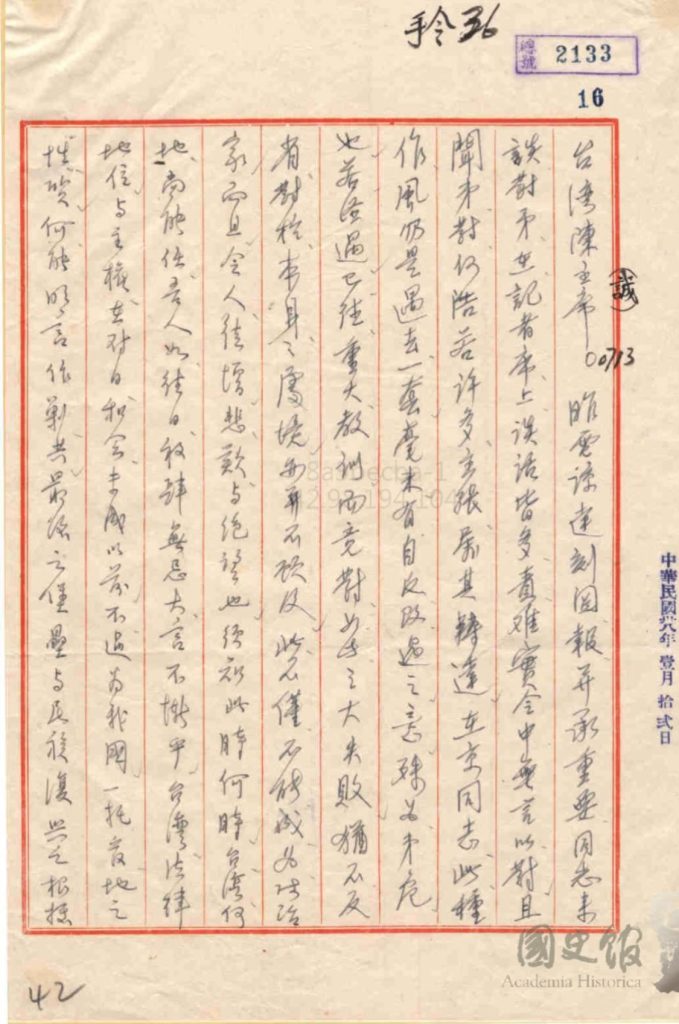 手令 36
總號 2133
16
台湾陳主席(誠) 00713 昨電諒達刻閱報并承重要同志來
談對弟在記者席上談話皆多責难實令中無言以對且
聞弟對何浩若許多主張屬其轉達在京同志此種
作風仍是過去一套毫未有自反改過之意殊為弟危
也若經過已往重大教訓而竟對如此之大失敗猶不反
省對於本身之處境亦再不顧及此不僅不能成為政治
家而且令人徒增悲歎与絕望也須知此時何時台湾何
地尚能任吾人如往日放肆無忌大言不慚乎台湾法律
地位与主權在對日和会未成以前不过為我國一托管地之
性質何能明言作剿共最後之堡壘与民族復興之根據
中華民國卅八年 壹月 拾弍日
42
國史館
Academia Historica